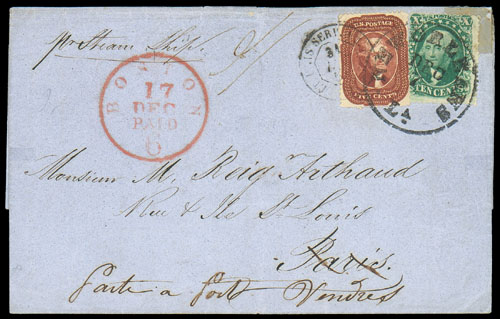 pr Steam Ship
BOSTON
17
DEC
PAID
U.S. POSTAGE
FIVE CENTS
U.S. POSTAGE
TEN CENTS
Monsieur M. Roig Arthaud
Rue & Ile St. Louis
Paris
Parte a Port Vendres